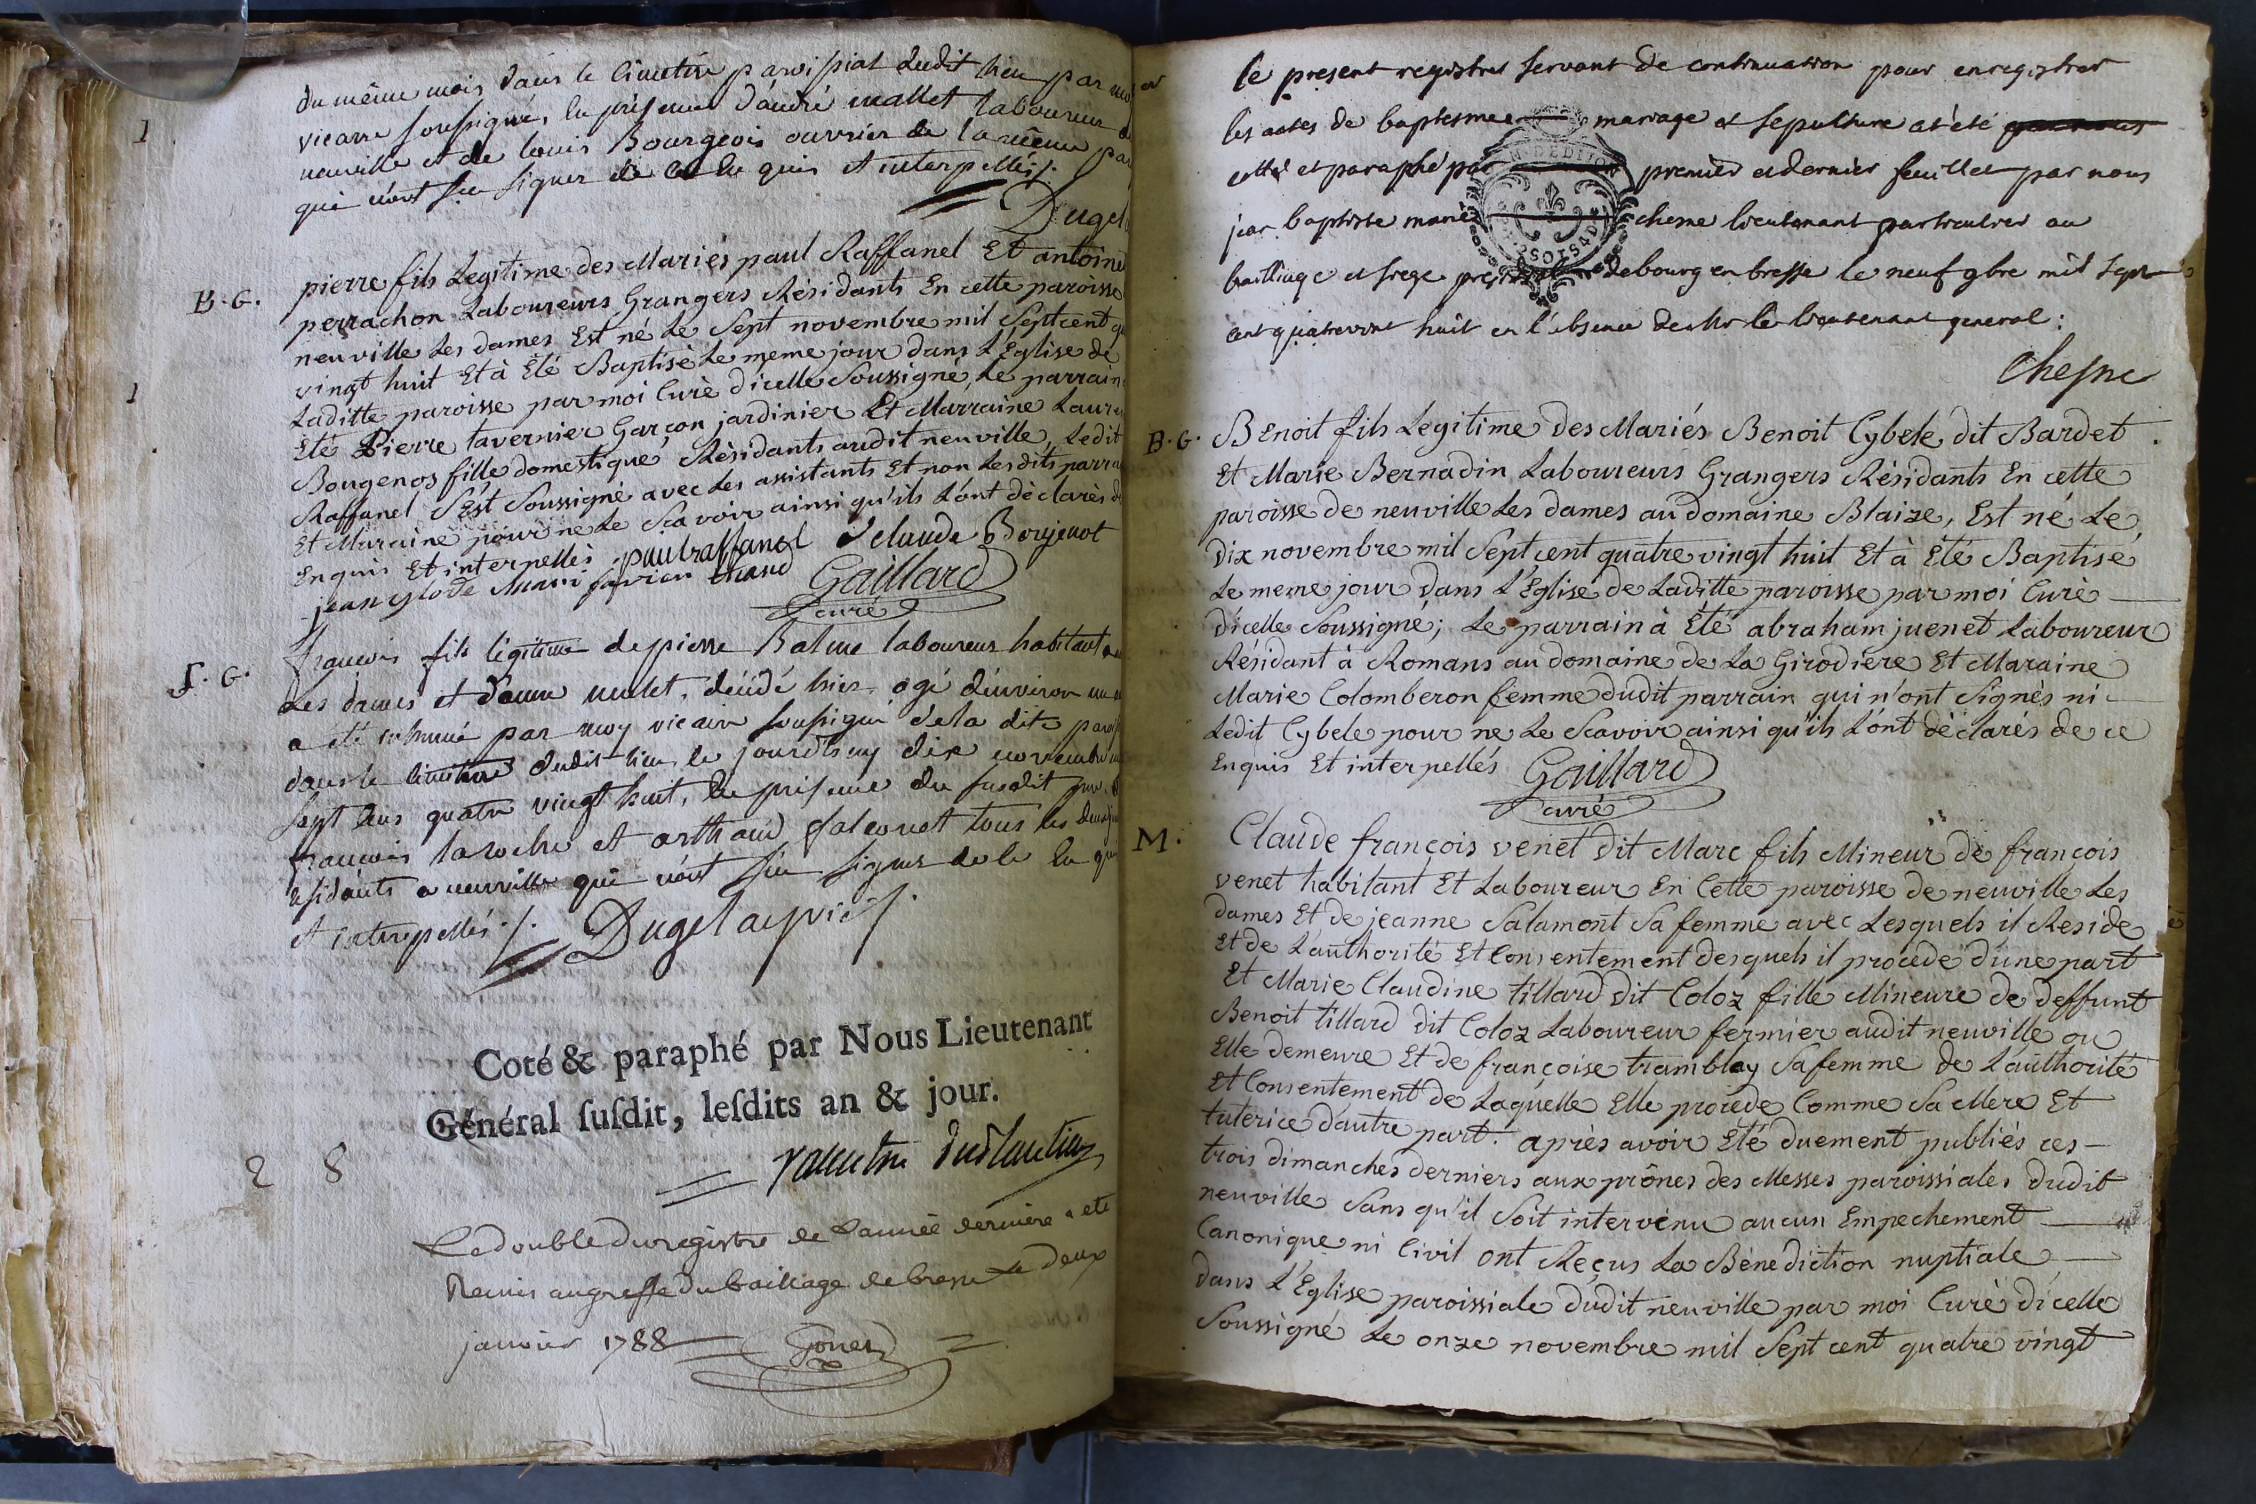 1
du même mois dans le cimetière paroissial dudit lieu par moy
vicaire soussigné, en présence d'andré mallet laboureur
neuville et de louis Bourgeois ouvrier de la même par
qui n'ont sçu signer de ce enquis et interpellés ./.
Dugel
B. G.
pierre fils Legitime des Mariés paul Raffanel Et antoine
perrachon Laboureurs Grangers Résidants En cette paroisse
neuville Les dames Est né Le Sept novembre mil Sept cent q
vingt huit Et à Eté Baptisé Le meme jour dans L'Eglise de
1
Laditte paroisse par moi Curé d'icelle Soussigné, Le parrain
Eté Pierre tavernier Garçon jardinier Et Marraine Laur
Bougenos fille domestique Résidants audit neuville, Ledit
Raffanel S'Est Soussigné avec Les assistants Et non Lesdits parra
Et Maraine pour ne Le Scavoir ainsi qu'ils L'ont déclarés d
Enquis Et interpellés. paul raffanel Claude Borjenot
jean
Gaillard
curé
S. G.
francois fils légitime de pierre Balme laboureur habitant
Les dames et d'anne mulet, décédé hier, agé d'environ un
a eté inhumé par moy vicaire soussigné de la dite paroi
dans le cimetiere dudit lieu le jourd'huy dix novembre
Sept cens quatre vingt huit, en présence du susdit
francois laroche et arthaud falconet tous les deux
résidants a neuville qui n'ont sçu signer de ce en qui
et interpellés ./. Dugelay vic ./.
Coté & paraphé par Nous Lieutenant
Général ſuſdit, leſdits an & jour.
2 8
Le double du registre de L'année derniere a eté
Remis au greffe du bailliage de bresse Le deux
janvier 1788
Gonet
le present registre servant de continuation pour enregistrer
les actes de baptesme mariage et sepulture at été
cotté et paraphé par premier et dernier feuillet par nous
jean baptiste marie chesne lieutenant particulier au
bailliage et siege presidial de bourg en bresse le neuf 9bre mil sept
cent quatrevint huit en l'absence de Mr le lieutenant general :
Chesne
B. G.
Benoit fils Legitime des Mariés Benoit Cybele dit Bardet
Et Marie Bernadin Laboureurs Grangers Résidants En cette
paroisse de neuville Les dames au domaine Blaize, Est né Le
Dix novembre mil Sept cent quatre vingt huit Et à Eté Baptisé
Le meme jour dans L'Eglise de Laditte paroisse par moi Curé
d'icelle Soussigné ; Le parrain à Eté abraham juenet Laboureur
Résidant à Romans au domaine de La Girodiere Et Maraine
Marie Colomberon femme dudit parrain qui n'ont Signés ni
Ledit Cybele pour ne Le Scavoir ainsi qu'ils L'ont déclarés de ce
Enquis Et interpellés Gaillard
curé
M.
Claude françois venet dit Marc fils Mineur de françois
venet habitant Et Laboureur En Cette paroisse de neuville Les
dames Et de jeanne Salamont Sa femme avec Lesquels il Reside
Et de L'authorité Et Consentement desquels il procede d'une part
Et Marie Claudine tillard dit Coloz fille Mineure de deffunt
Benoit tillard dit Coloz Laboureur fermier audit neuville ou
Elle demeure Et de françoise tramblay Sa femme de L'authorité
Et Consentement de Laquelle Elle procede Comme Sa Mere Et
tuterice d'autre part. après avoir Eté duement publiés ces
trois dimanches derniers aux prônes des Messes paroissiales dudit
neuville Sans qu'il Soit intervenu aucun Empechement
Canonique ni Civil ont Reçus La Bénediction nuptiale
dans L'Eglise paroissiale dudit neuville par moi Curé d'icelle
Soussigné Le onze novembre mil Sept cent quatre vingt